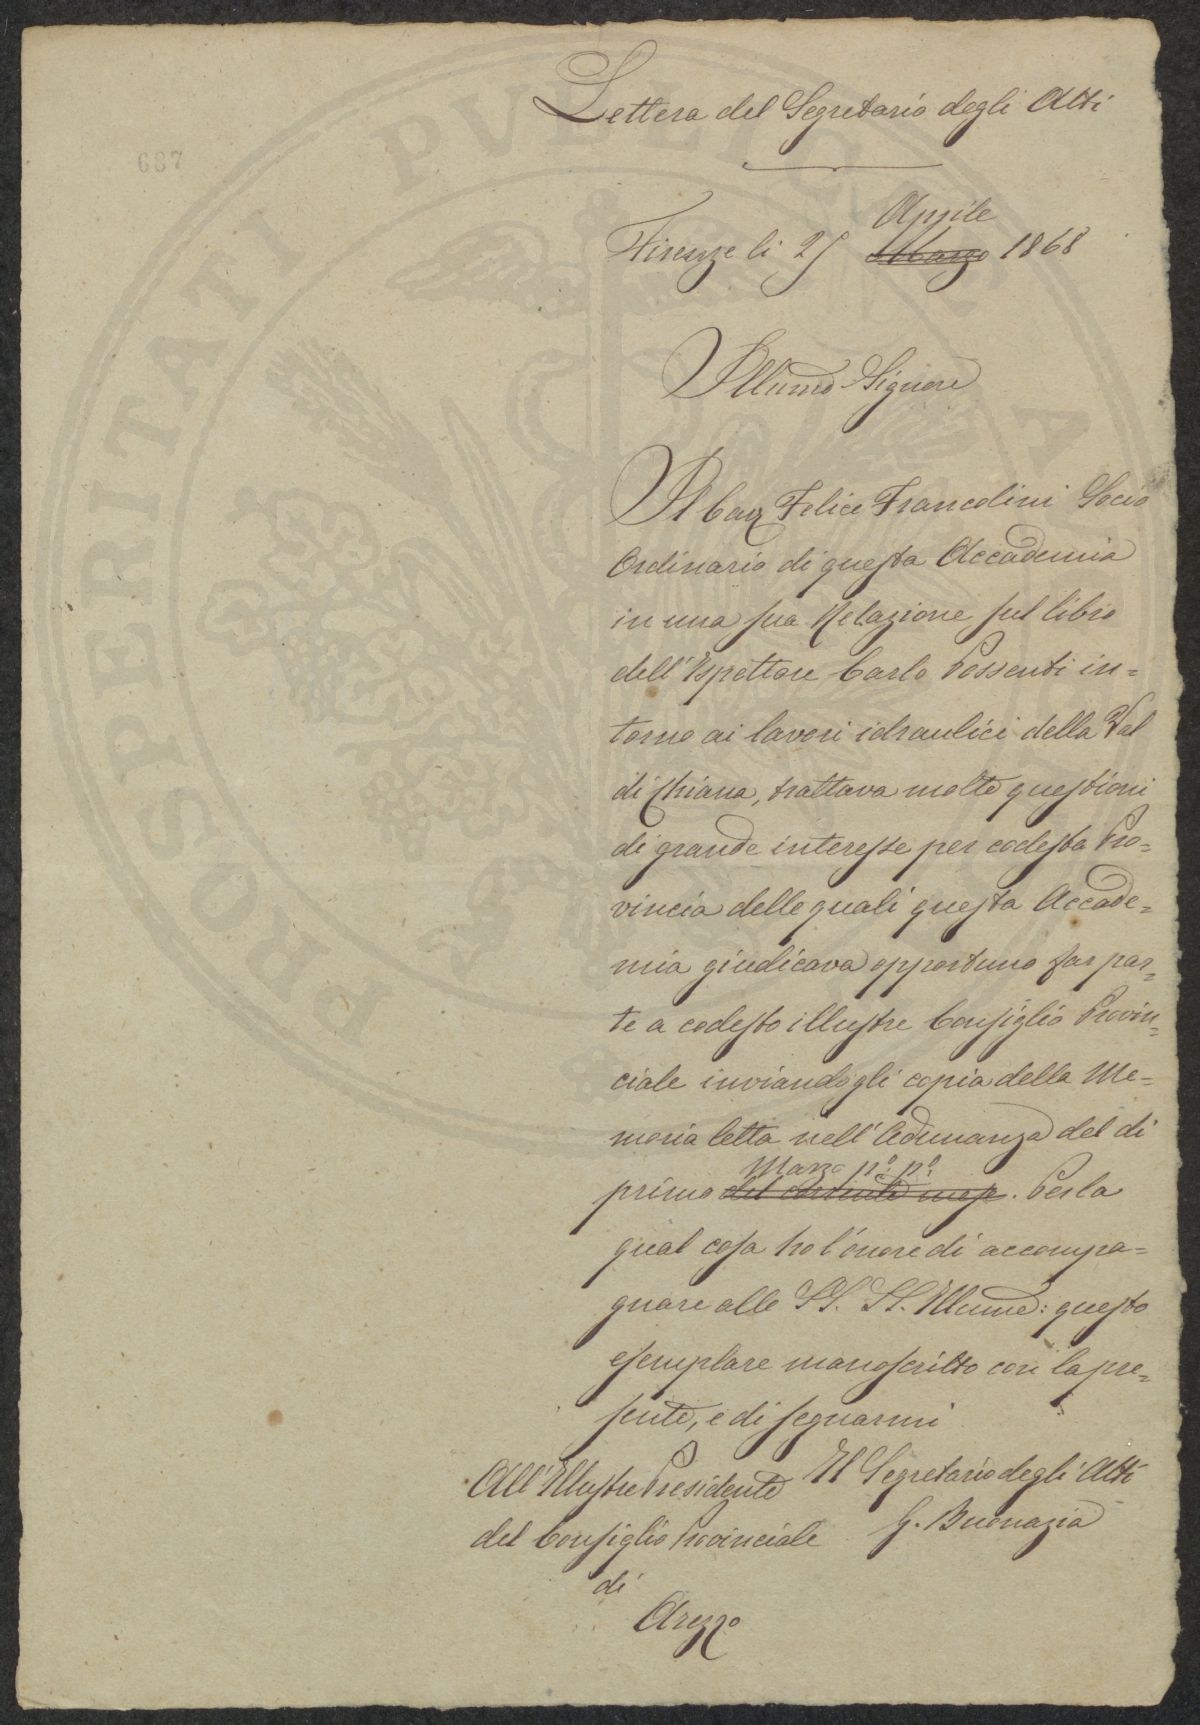 Lettera del Segretario degli Atti
687
Aprile
Firenze li 25 Marzo 1868
Illumo Signore
Il Cav Felice Francolini Socio
Ordinario di questa Accademia
in una sua Relazione sul libro
dell'Ispettore Carlo Possenti in=
torno ai lavori idraulici della Val
di Chiana, trattava molte questioni
di grande interesse per codesta Pro=
vincia delle quali questa Accade=
mia giudicava opportuno far par=
te a codesto illustre Consiglio Provin=
ciale inviandogli copia della Me=
moria letta nell'Adunanza del di
Marzo po: po:
primo del corrente mese. Per la
qual cosa ho l'onore di accompa=
gnare alle SS. LL. Illume: questo
esemplare manoscritto con la pre=
sente, e di segnarmi
All'Illustre Presidente Il Segretario degli Atti
del Consiglio Provinciale G. Buonazia
di
Arezzo
PROSPERITATI PUBLICAE